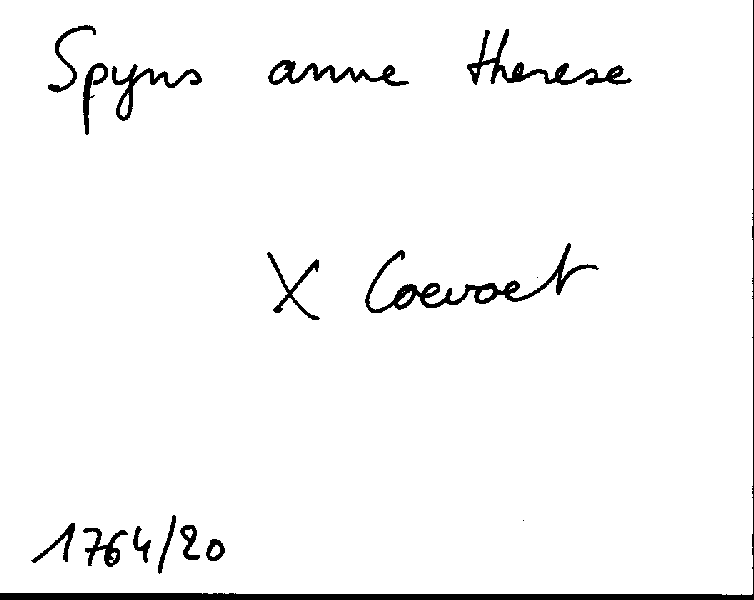 Spyns anne therese
X Coevoet
1764/20